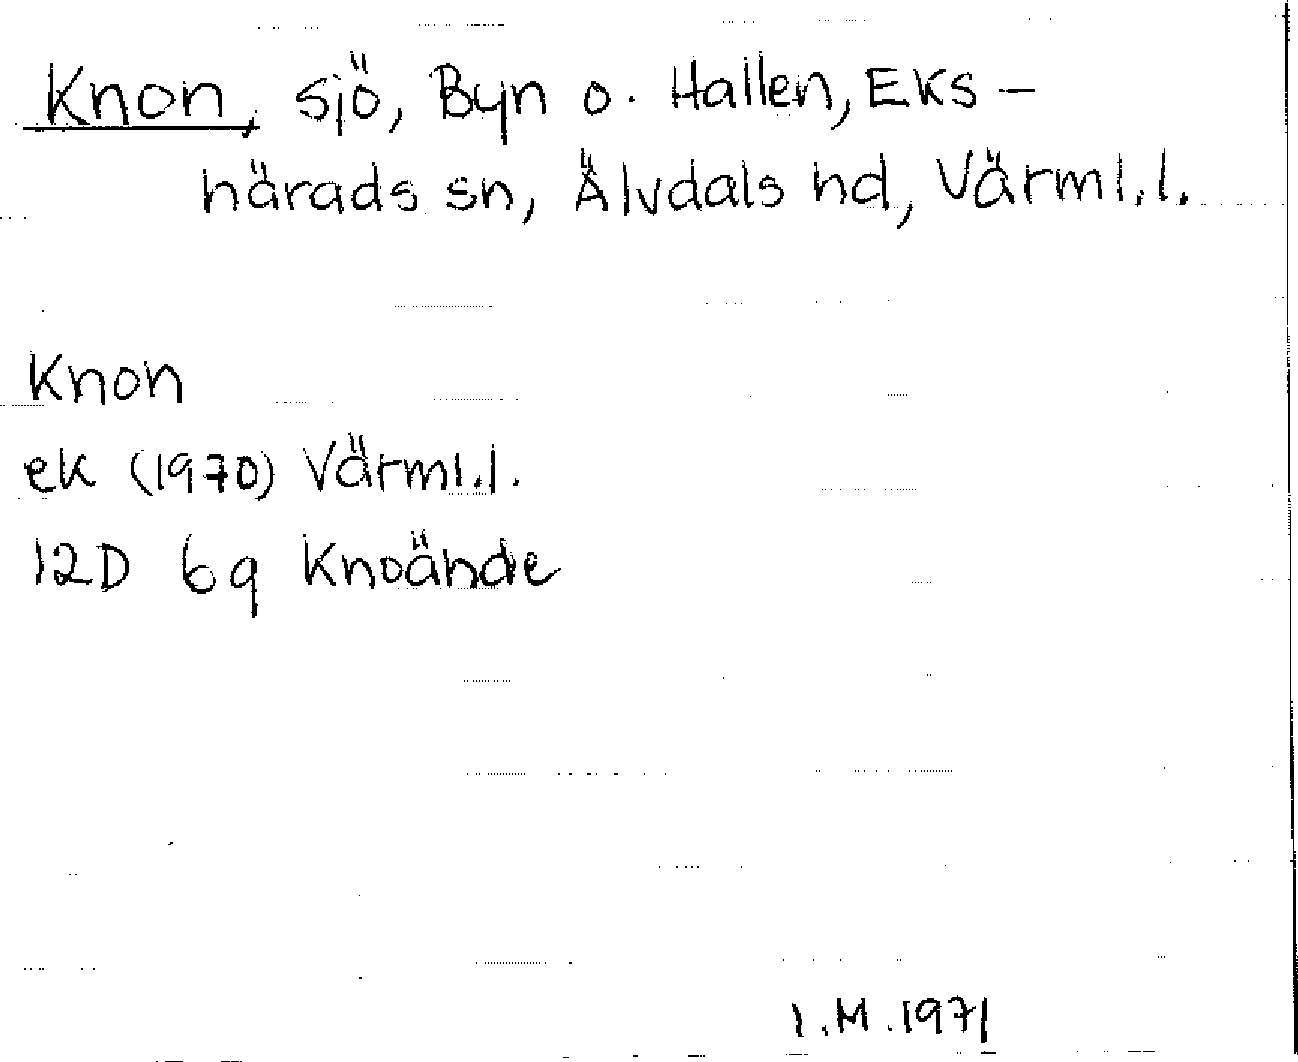 Knon, sjö, Byn o. Hallen, Eks-
härads sn, Älvdals hd, Värml.l.
Knon
ek (1970) Värml.l.
12D 6g Knoände
I.M.1971